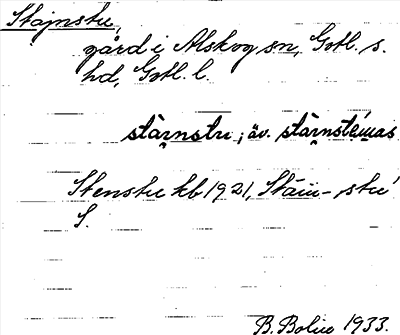 Stajnstu,
gård i Alskog sn, Gotl. s.
hd, Gotl. l.
stàrnstu; äv. stàrnstémas
Stenstu kb 1921, Stäin-stu
S.
B. Bolin 1933.